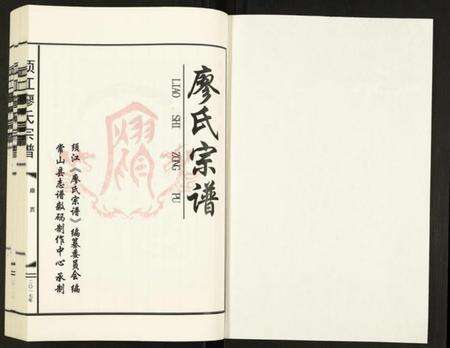 廖氏宗谱
LIAO SHI ZONG PU
须江《廖氏宗谱》编纂委员会编
常山县志谱数码制作中心承制
须江廖氏宗谱
二〇一七年